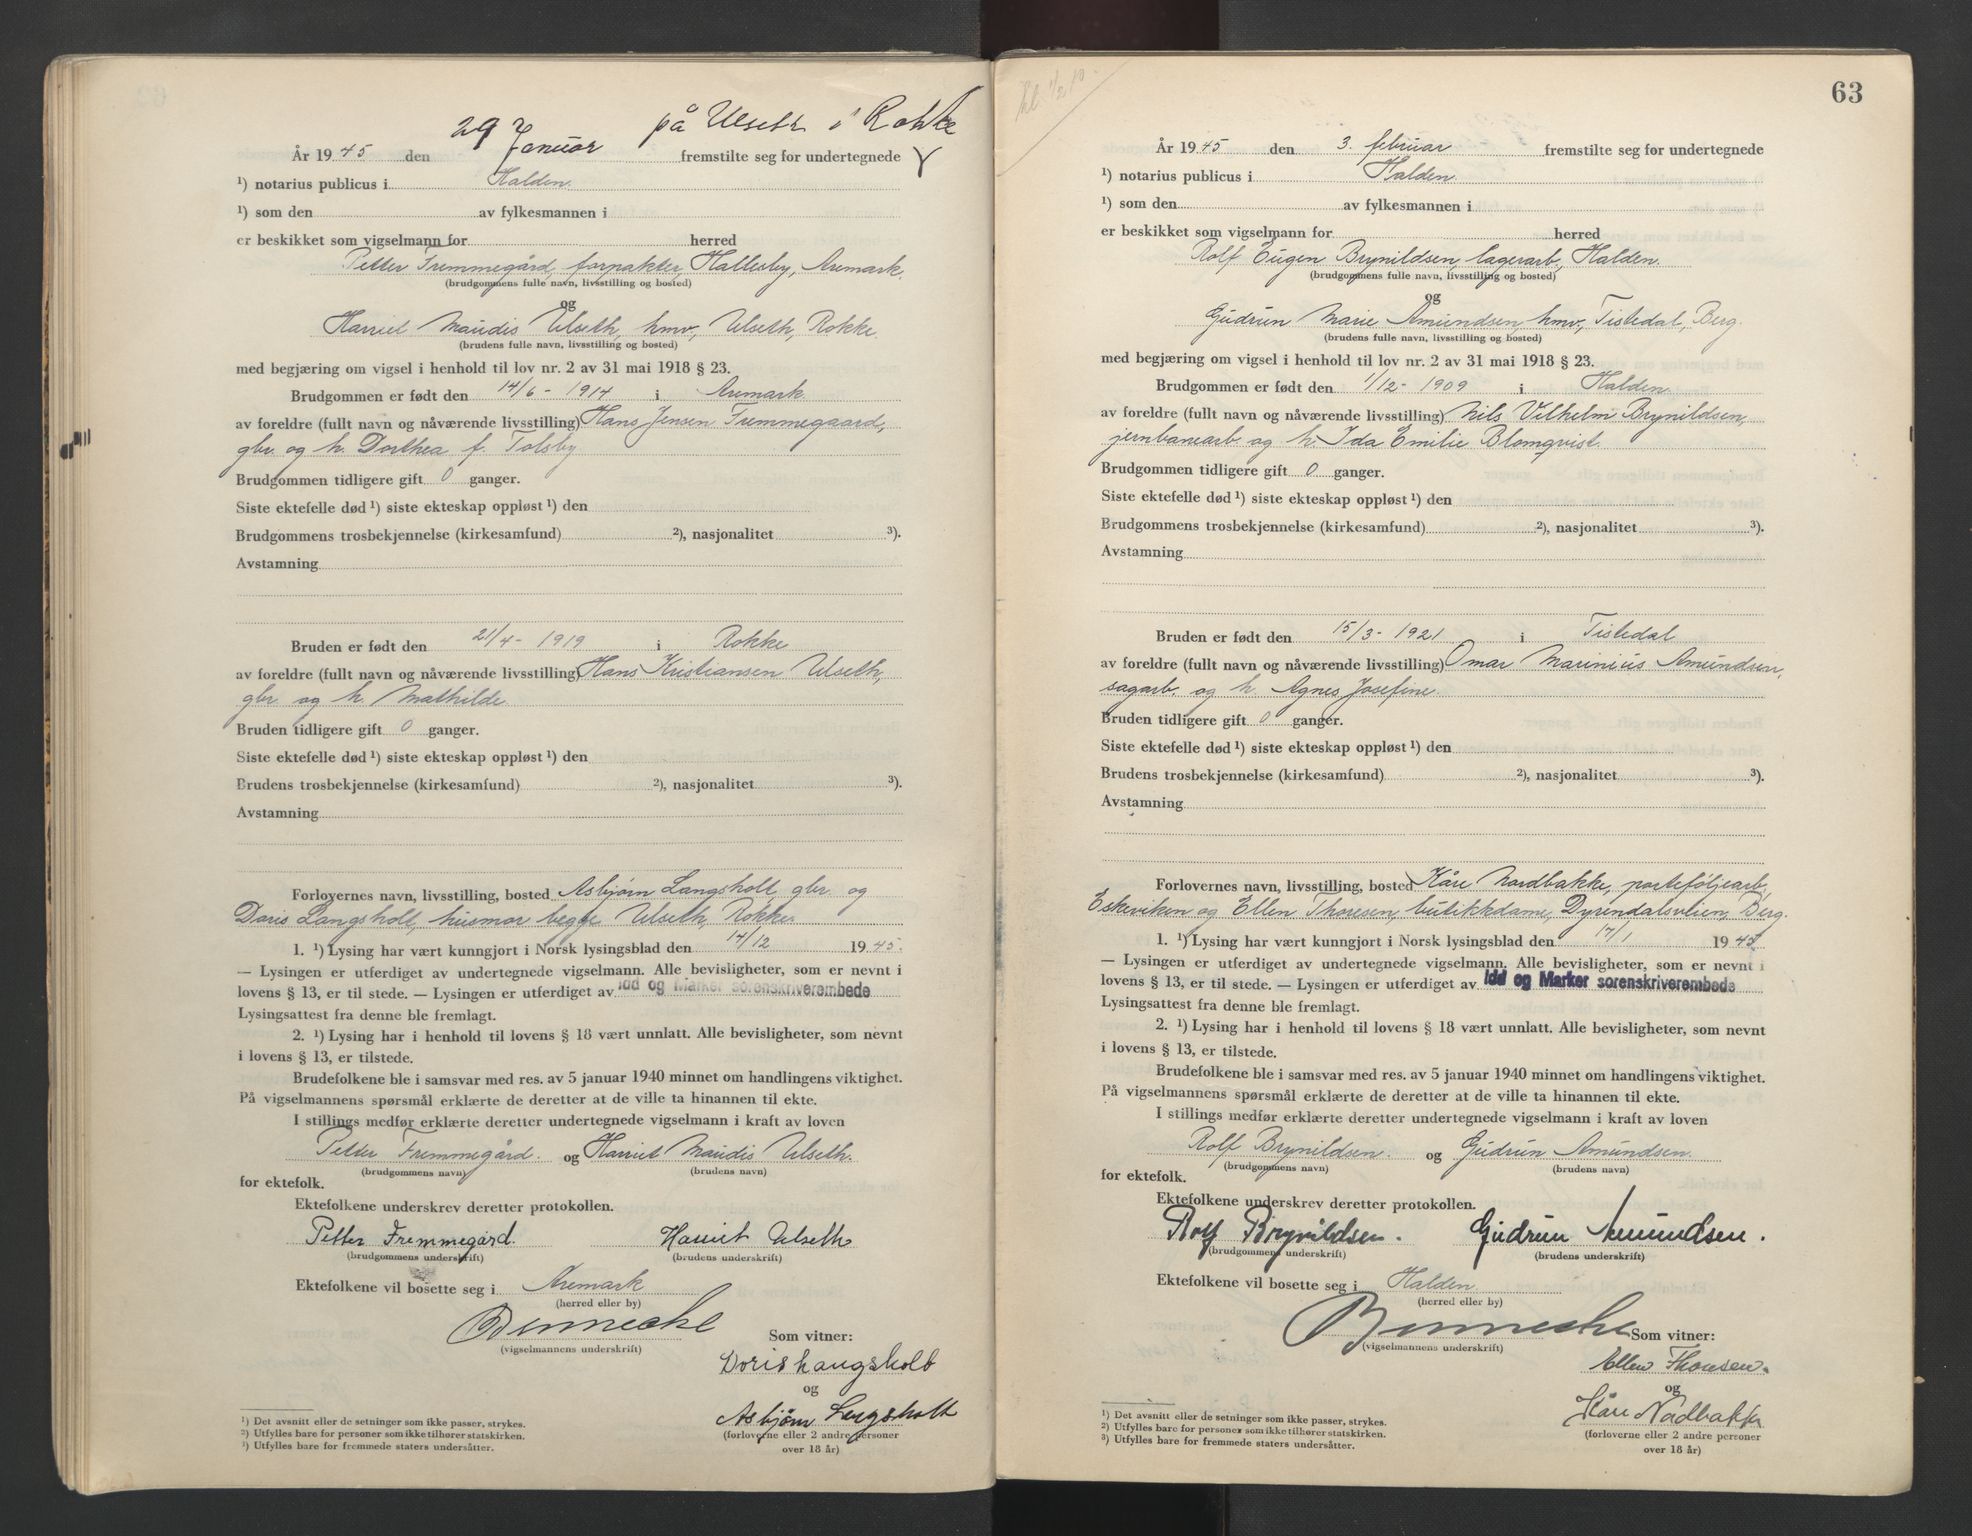 på Ulseth i Rokke
År 1945 den 29 Januar fremstilte seg for undertegnede
¹) notarius publicus i Halden
¹) som den av fylkesmannen i
er beskikket som vigselmann for herred
Petter Fremmegård, forpakter, Hallesby, Aremark.
(brudgommens fulle navn, livsstilling og bosted)
og
Harriet Maudis Ulseth, hmv, Ulseth, Rokke.
(brudens fulle navn, livsstilling og bosted)
med begjæring om vigsel i henhold til lov nr. 2 av 31 mai 1918 § 23.
Brudgommen er født den 14/6 - 1914 i Aremark
av foreldre (fullt navn og nåværende livsstilling) Hans Jensen Fremmegaard,
gbr. og h. Dorthea f. Tolsby
Brudgommen tidligere gift 0 ganger.
Siste ektefelle død ¹) siste ekteskap oppløst ¹) den
Brudgommens trosbekjennelse (kirkesamfund) ²), nasjonalitet ³).
Avstamning
Bruden er født den 21/4 - 1919 i Rokke
av foreldre (fullt navn og nåværende livsstilling) Hans Kristiansen Ulseth,
gbr. og h. Mathilde
Bruden tidligere gift 0 ganger.
Siste ektefelle død ¹) siste ekteskap oppløst ¹) den
Brudens trosbekjennelse (kirkesamfund) ²), nasjonalitet ³).
Avstamning
Forlovernes navn, livsstilling, bosted Asbjørn Langsholt, gbr. og
Doris Langsholt, husmor begge Ulseth, Rokke
1. ¹) Lysing har vært kunngjort i Norsk lysingsblad den 14/12 1945.
— Lysingen er utferdiget av undertegnede vigselmann. Alle bevisligheter, som er nevnt i
lovens § 13, er til stede. — Lysingen er utferdiget av Idd og Marker sorenskriverembede
Lysingsattest fra denne ble fremlagt.
2. ¹) Lysing har i henhold til lovens § 18 vært unnlatt. Alle bevisligheter, som nevnt
i lovens § 13, er tilstede.
Brudefolkene ble i samsvar med res. av 5 januar 1940 minnet om handlingens viktighet.
På vigselmannens spørsmål erklærte de deretter at de ville ta hinannen til ekte.
I stillings medfør erklærte deretter undertegnede vigselmann i kraft av loven
Petter Fremmegård. og Harriet Maudis Ulseth.
(brudgommens navn) (brudens navn)
for ektefolk.
Ektefolkene underskrev deretter protokollen.
Petter Fremmegård. Harriet Ulseth
(brudgommens underskrift) (brudens underskrift)
Ektefolkene vil bosette seg i Aremark
(herred eller by)
Bennecke
(vigselmannens underskrift)
Som vitner:
Doris Langsholt
og
Asbjørn Langsholt
(forloverne eller 2 andre personer
over 18 år)
¹) Det avsnitt eller de setninger som ikke passer, strykes.
²) Utfylles bare for personer som ikke tilhører statskirken.
³) Utfylles bare for fremmede staters undersåtter.
63
År 1945 den 3. februar fremstilte seg for undertegnede
¹) notarius publicus i Halden
¹) som den av fylkesmannen i
er beskikket som vigselmann for herred
Rolf Eugen Brynildsen, lagerarb., Halden.
(brudgommens fulle navn, livsstilling og bosted)
og
Gudrun Marie Amundsen, hmv., Tistedal, Berg.
(brudens fulle navn, livsstilling og bosted)
med begjæring om vigsel i henhold til lov nr. 2 av 31 mai 1918 § 23.
Brudgommen er født den 1/12 - 1909 i Halden
av foreldre (fullt navn og nåværende livsstilling) Nils Vilhelm Brynildsen,
jernbanearb og h. Ida Emilie Blomqvist.
Brudgommen tidligere gift 0 ganger.
Siste ektefelle død ¹) siste ekteskap oppløst ¹) den
Brudgommens trosbekjennelse (kirkesamfund) ²), nasjonalitet ³).
Avstamning
Bruden er født den 15/3 - 1921 i Tistedal
av foreldre (fullt navn og nåværende livsstilling) Omar Marinius Amundsen,
sagarb. og h. Agnes Josefine.
Bruden tidligere gift 0 ganger.
Siste ektefelle død ¹) siste ekteskap oppløst ¹) den
Brudens trosbekjennelse (kirkesamfund) ²), nasjonalitet ³).
Avstamning
Forlovernes navn, livsstilling, bosted Kåre Nordbakke, porteføljearb,
Eskeviken og Ellen Thoresen, butikkdame, Dyrendalsveien, Berg.
1. ¹) Lysing har vært kunngjort i Norsk lysingsblad den 17/1 1945
— Lysingen er utferdiget av undertegnede vigselmann. Alle bevisligheter, som er nevnt i
lovens § 13, er til stede. — Lysingen er utferdiget av Idd og Marker sorenskriverembede
Lysingsattest fra denne ble fremlagt.
2. ¹) Lysing har i henhold til lovens § 18 vært unnlatt. Alle bevisligheter, som nevnt
i lovens § 13, er tilstede.
Brudefolkene ble i samsvar med res. av 5 januar 1940 minnet om handlingens viktighet.
På vigselmannens spørsmål erklærte de deretter at de ville ta hinannen til ekte.
I stillings medfør erklærte deretter undertegnede vigselmann i kraft av loven
Rolf Brynildsen. og Gudrun Amundsen.
(brudgommens navn) (brudens navn)
for ektefolk.
Ektefolkene underskrev deretter protokollen.
Rolf Brynildsen. Gudrun Amundsen.
(brudgommens underskrift) (brudens underskrift)
Ektefolkene vil bosette seg i Halden
(herred eller by)
Bennecke
(vigselmannens underskrift)
Som vitner:
Ellen Thoresen.
og
Kåre Nordbakke
(forloverne eller 2 andre personer
over 18 år)
¹) Det avsnitt eller de setninger som ikke passer, strykes.
²) Utfylles bare for personer som ikke tilhører statskirken.
³) Utfylles bare for fremmede staters undersåtter.